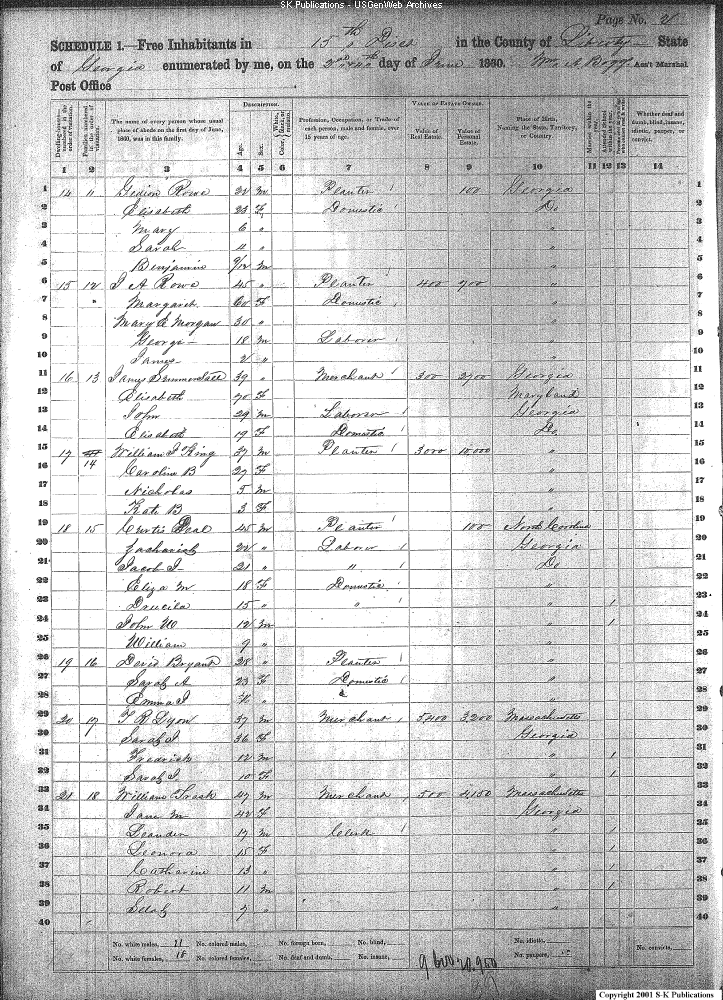 S-K Publications - USGenWeb Archives
Page No. 21
SCHEDULE 1.—Free Inhabitants in 15th Dist in the County of Liberty State
of Georgia enumerated by me, on the day of June 1860. Wm A Ass't Marshal
Post Office
Dwelling-houses—numbered in the order of visitation.
Families numbered in the order of visitation.
The name of every person whose usual place of abode on the first day of June, 1860, was in this family.
DESCRIPTION.
Age.
Sex.
White, black, or mulatto.
Color
Profession, Occupation, or Trade of each person, male and female, over 15 years of age.
VALUE OF ESTATE OWNED.
Value of Real Estate.
Value of Personal Estate.
Place of Birth, Naming the State, Territory, or Country.
Married within the year.
Attended School within the year.
Whether deaf and dumb, blind, insane, idiotic, pauper, or convict.
1 2 3 4 5 6 7 8 9 10 11 12 13 14
1 14 11 Gedion Rowe 22 m Planter 100 Georgia 1
2 Elisabeth 23 F Domestic Do 2
3 Mary 6 " " 3
4 Sarah " " 4
5 Benjamin /12 m " 5
6 15 12 J A Rowe 45 " Planter 400 900 " 6
7 Margaret 60 F Domestic " 7
8 Mary E Morgan 30 " " 8
9 George 18 m Laborer " 9
10 James " " 10
11 16 13 James 39 " Merchant 300 2700 Georgia 11
12 Elisabeth 70 F Maryland 12
13 John 29 m Laborer Georgia 13
14 Elisabeth 19 F Domestic Do 14
15 17 14 William J King 37 m Planter 3000 10,000 " 15
16 Caroline B 27 F " 16
17 Nicholas 5 m " 17
18 Kate B 3 F " 18
19 18 15 Curtis Deal 45 m Planter 100 North Carolina 19
20 Zachariah 22 " Laborer Georgia 20
21 Jacob J 21 " " Do 21
22 Eliza M 18 F Domestic " 22
23 Drucila 15 " " " 1 23
24 John W 12 m " 1 24
25 William 9 " " 25
26 19 16 David Bryant 28 " Planter " 26
27 Sarah A 23 F Domestic " 27
28 Emma J " " 28
29 20 17 T R Lyon 37 m Merchant 5,400 3,200 Massachusetts 29
30 Sarah J 36 F Georgia 30
31 Fredrick 12 m " 1 31
32 Sarah J 10 F " 1 32
33 21 18 William Trask 47 m Merchant 500 4,150 Massachusetts 33
34 Jane M 42 F Georgia 34
35 Leander 17 m Clerk " 1 35
36 Leonora 15 F " 1 36
37 Catharine 13 " " 1 37
38 Robert 11 m " 1 38
39 7 " " 39
40 40
No. white males, 21 No. colored males, No. foreign born, No. blind, No. idiotic, No. convicts,
No. white females, 18 No. colored females, No. deaf and dumb, No. insane, 9600 20,900 No. paupers,
Copyright 2001 S-K Publications